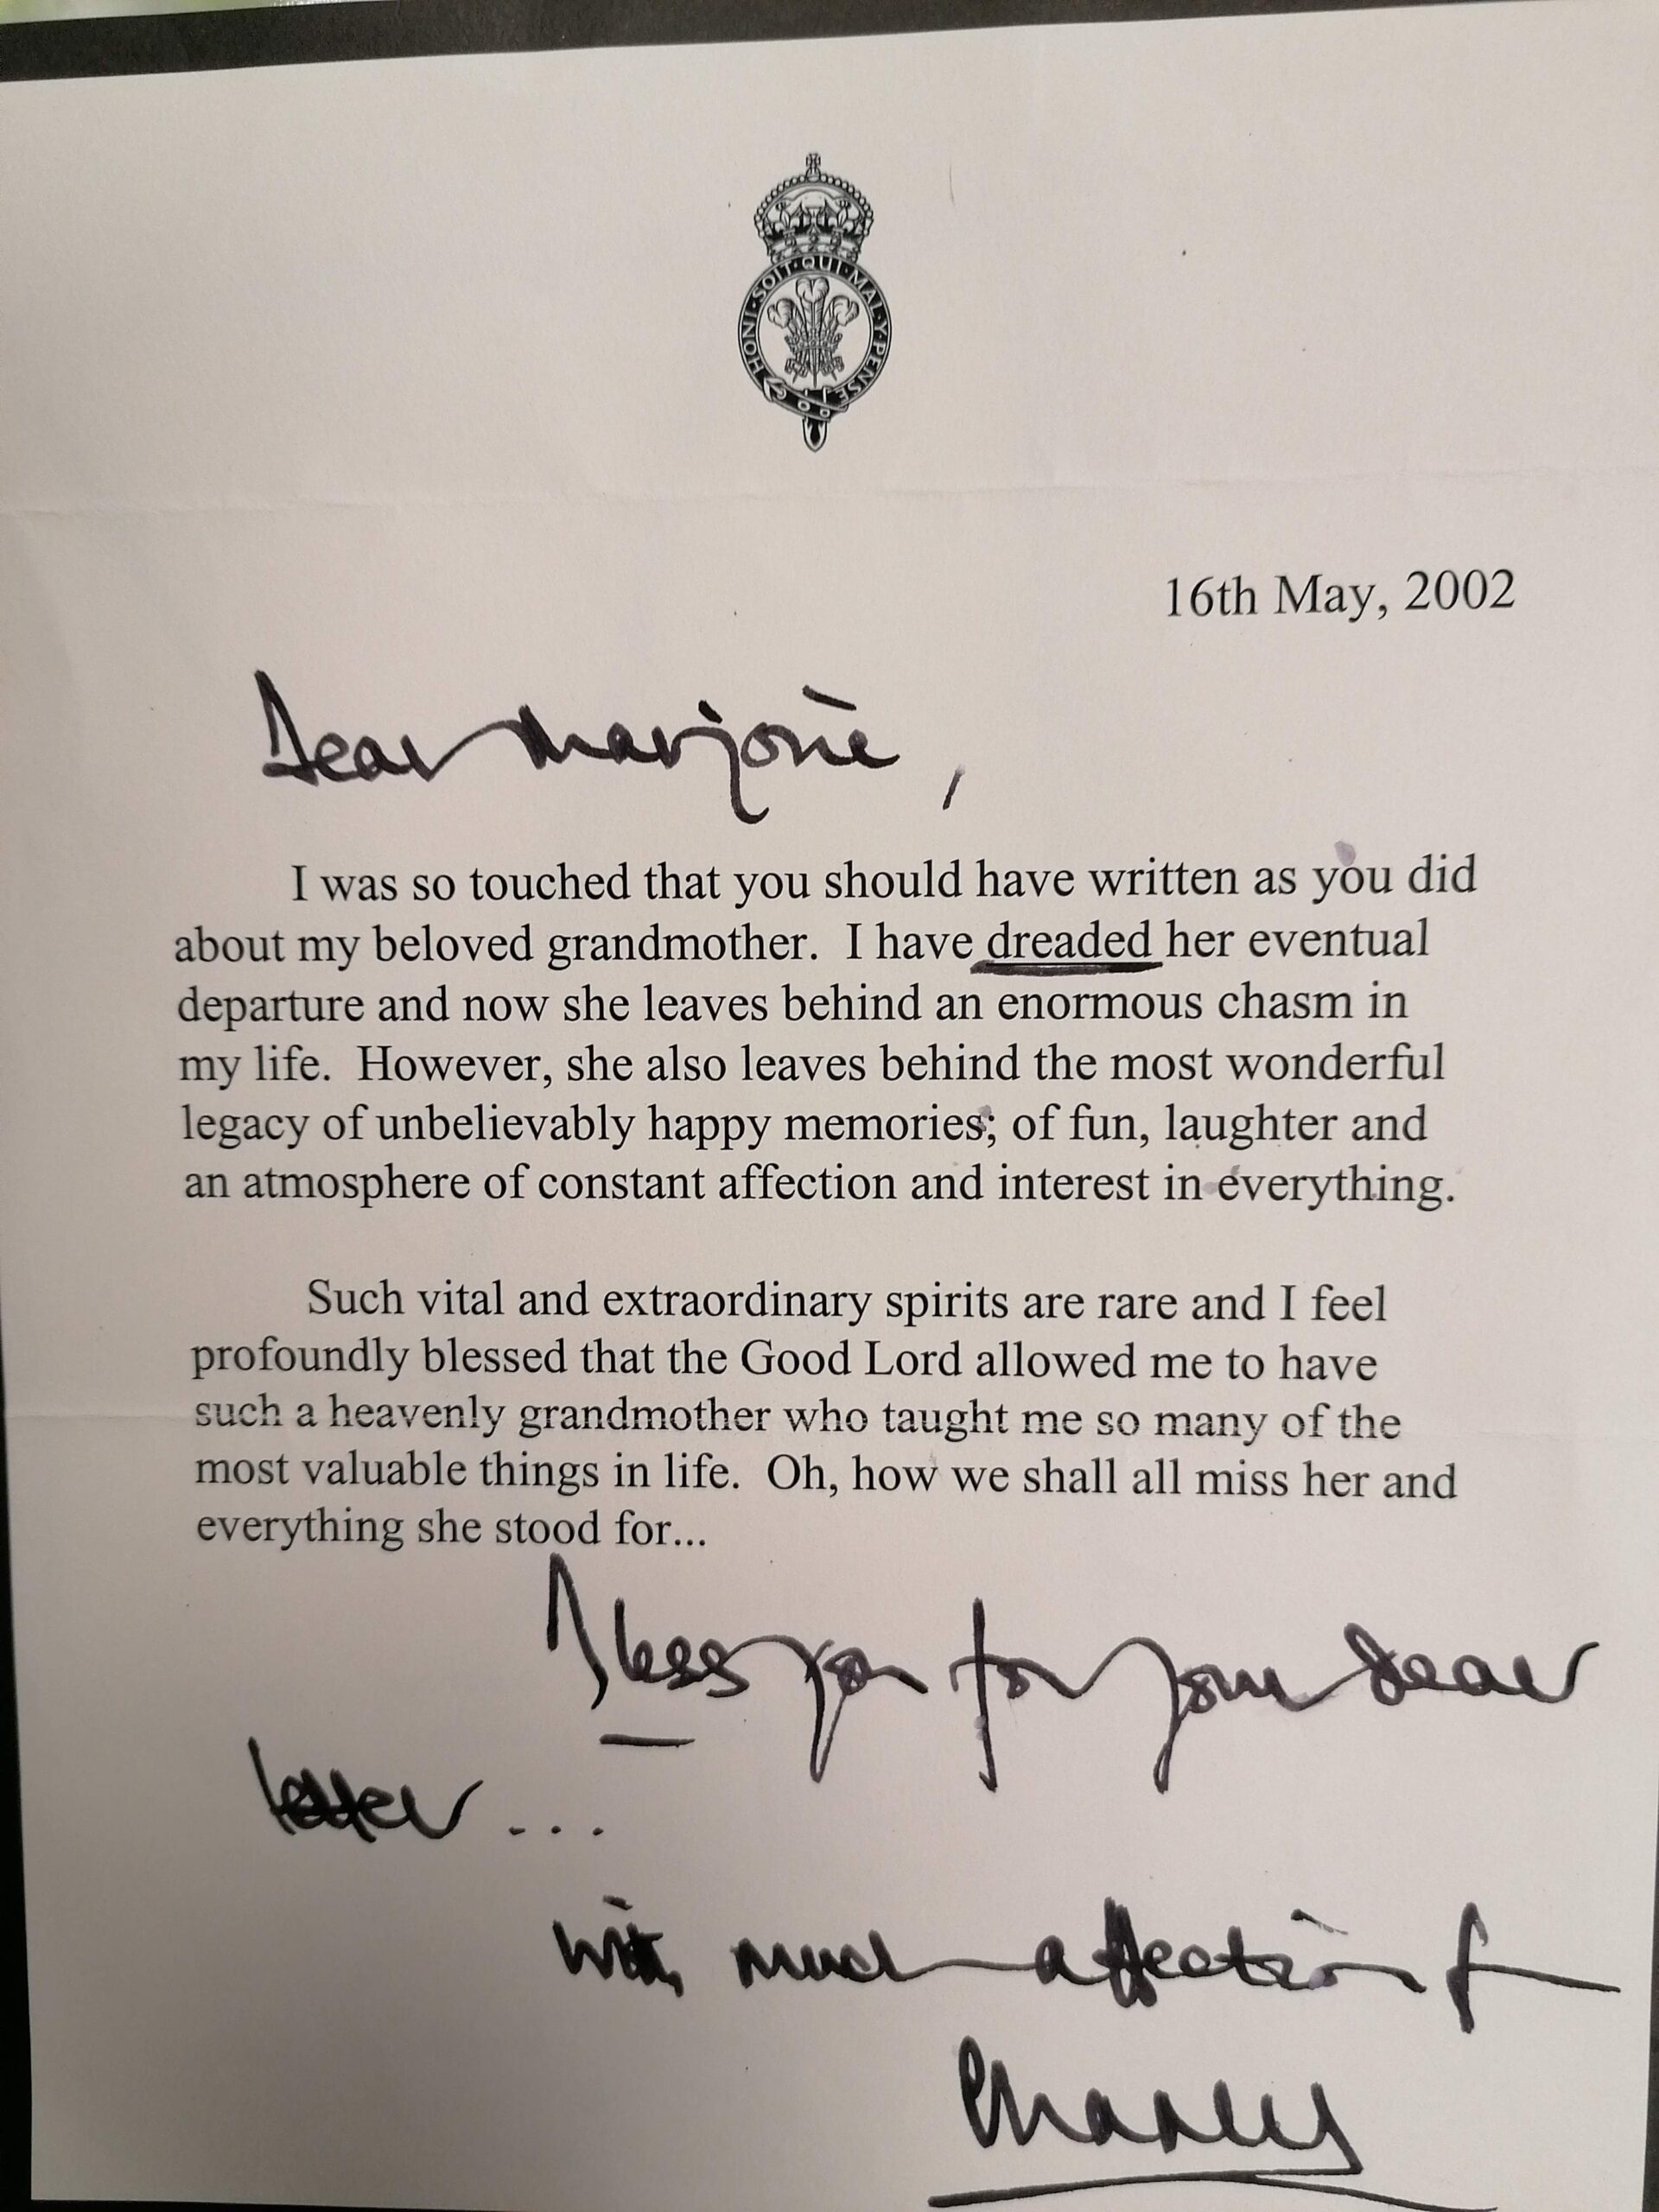 HONI·SOIT·QUI·MAL·Y·PENSE
16th May, 2002
Dear Marjorie,
I was so touched that you should have written as you did
about my beloved grandmother. I have dreaded her eventual
departure and now she leaves behind an enormous chasm in
my life. However, she also leaves behind the most wonderful
legacy of unbelievably happy memories; of fun, laughter and
an atmosphere of constant affection and interest in everything.
Such vital and extraordinary spirits are rare and I feel
profoundly blessed that the Good Lord allowed me to have
such a heavenly grandmother who taught me so many of the
most valuable things in life. Oh, how we shall all miss her and
everything she stood for...
Bless you for your dear
letter...
with much affection
Charles